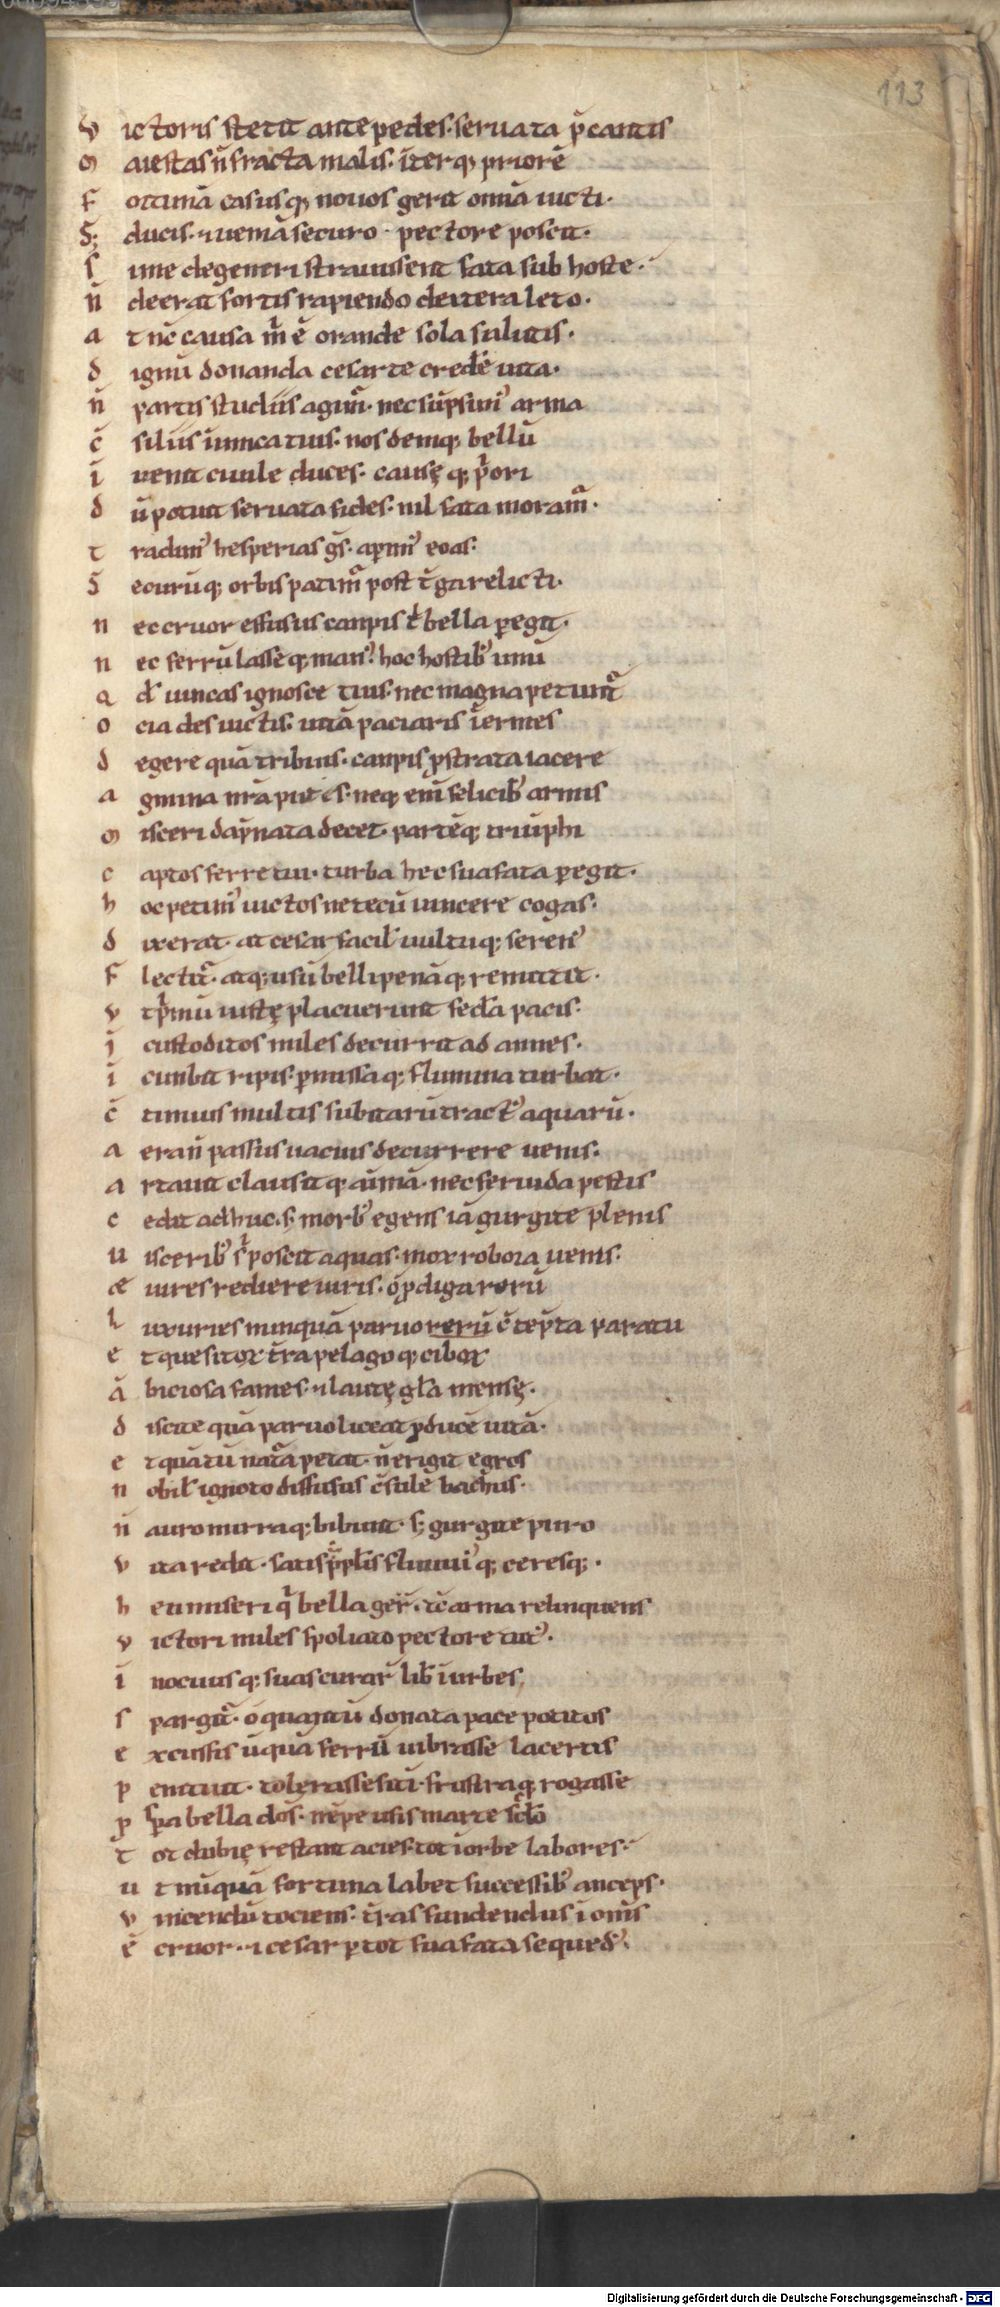 113
V ictoris stetit ante pedes. seruata p̄cantis
M aiestas n̄ fracta malis. int̄erq; priorē
F ortunā casusq; nouos gerit omīa uicti.
S; ducis. ⁊ ueniā securo pectore poscit.
S i me degeneri strauissent fata sub hoste.
N̄ deerat fortis rapiendo dextera leto.
A t nc̄ causa m̄ ē orande sola salutis.
D ignū donanda cesar te credē uita.
N̄ partis studiis agim̃. nec sūpsim᾿ arma
C̄ siliis īimica tuis. nos deniq; bellū
I nuenit ciuile duces. causęq; p̄ori
D ū potuit seruata fides. nil fata moram̃.
T radim᾿ hesperias gs̄. aperim᾿ eoas.
S ecurūq; orbis patim̃ post t̄ga relicti.
N ec cruor effusus canpis t bella peregit.
N ec ferrū lasseq; man᾿. hoc hostib᾿ unū
Q d̄ uincas ignosce tuis. nec magna petunt̃
O cia des uictis. uitā paciaris īermes
D egere quā tribuis. canpis pstrata iacere
A gmina nr̄a putes. neq; enī felicib᾿ armis
M isceri dapnata decet. partēq; triūphi
C aptos ferre tui. turba hec sua fata peregit.
H oc petim᾿ uictos ne tecū uincere cogas.
D ixerat. at cesar facil᾿ uultuq; seren᾿
F lectit̃. atq; usū belli penāq; remittit.
V t p̄mū iustę placuerunt fed̄a pacis.
I custoditos miles decurrit ad amnes.
I cunbit ripis. pmissaq; flumina turbat.
C̄ tinuus multis subitarū tract᾿ aquarū.
A eran̄ passus uacuis decurrere uenis.
A rtauit clausitq; aīmā. nec feruida pestis
C edit adhuc. s; morb᾿ egens iā gurgite plenis
U isceribᷤ s poscit aquas. mox robora uenis.
Æ uires rediere uiris. o pdiga rerū
L uxuries nunquā paruo rerū c̄tēpta paratu
E t quesitoꝝ t̄ra pelagoq; ciboꝝ
Ā biciosa fames. ⁊ lautę gl̄a mensę.
D iscite quā paruo liceat pducē uitā.
E t quātū nat̃a petat. n̄ erigit egros
N obil᾿ ignoto diffusus c̄sule bachus.
N̄ auro mirraq; bibunt. s; gurgite puro
V ita redit. satis p̄plis fluuiiq; ceresq;.
H eu miseri q̄ bella ger̄. tc̄ arma relinquens
V ictori miles spoliato pectore tut᾿.
I nocuusq; suas curar̄ lib᾿ ī urbes
S pargit̃. o quantū donata pace potitos
E xcussis ūquā ferrū uibrasse lacertis
P enituit. tolerasse sitī. frustraq; rogasse
P spa bella dos̄. nēpe usis marte scd̄o
T ot dubię restant acies. tot ī orbe labores.
U t nūquā fortuna labet successib᾿ anceps.
V incendū tociens. t̄ras fundendus ī omīs
Ē cruor. ⁊ cesar p tot sua fata sequend᾿.
Digitalisierung gefördert durch die Deutsche Forschungsgemeinschaft - DFG